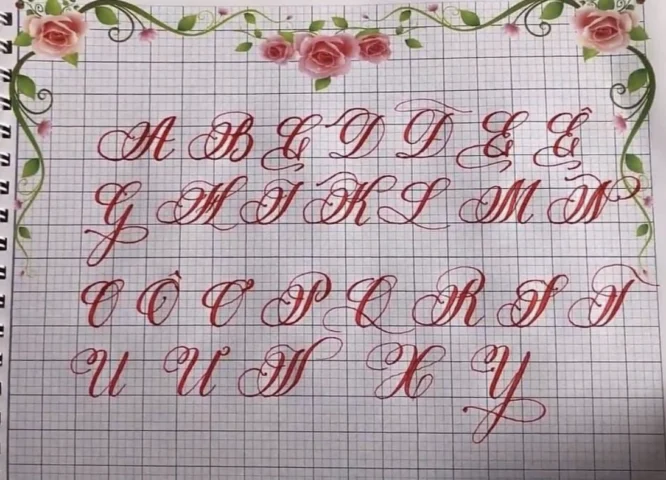 A B C D Đ E Ê
G H I K L M N
O Ô Ơ P Q R S T
U Ư V X Y